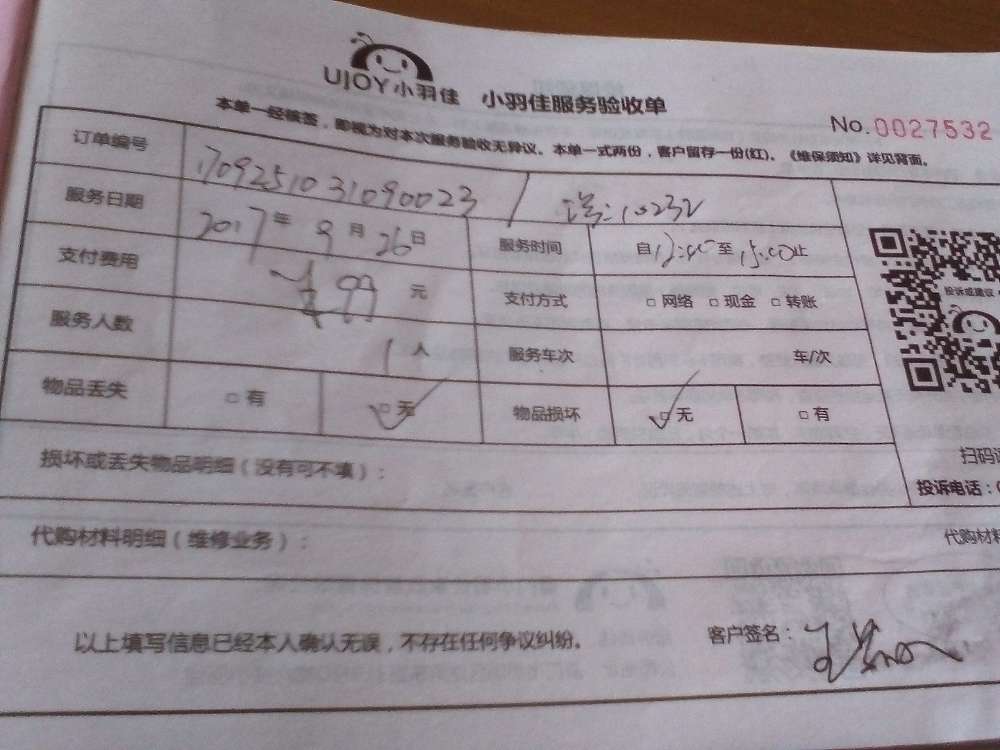 UJOY小羽佳 小羽佳服务验收单
No.0027532
本单一经核签，即视为对本次服务验收无异议。本单一式两份，客户留存一份(红)。《维保须知》详见背面。
订单编号 170925103109 0023
服务日期 2017年9月26日 服务时间 自 至15:00止
支付费用 99元 支付方式 □网络 □现金 □转账
服务人数 1人 服务车次 车/次
物品丢失 □有 □无 物品损坏 □无 □有
投诉或建议
损坏或丢失物品明细（没有可不填）：
扫码
投诉电话：
代购材料明细（维修业务）：
代购材料
以上填写信息已经本人确认无误，不存在任何争议纠纷。
客户签名：